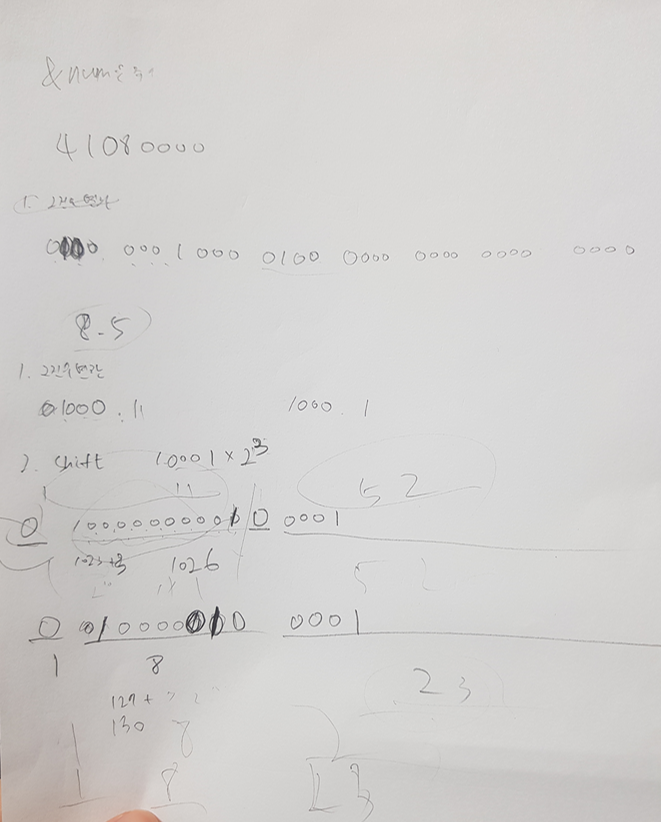 &num은
41080000
1. 2진수 변환
000 1 000 0100 0000 0000 0000 0000
8.5
1. 2진수 변환
01000.11 1000.1
2. shift 1.0001 × 2^3
1 11 52
0 10000000010 0001
1023+3 1026
52
0 10000010 0001
1 8
23
127+
130 8
1 8 23